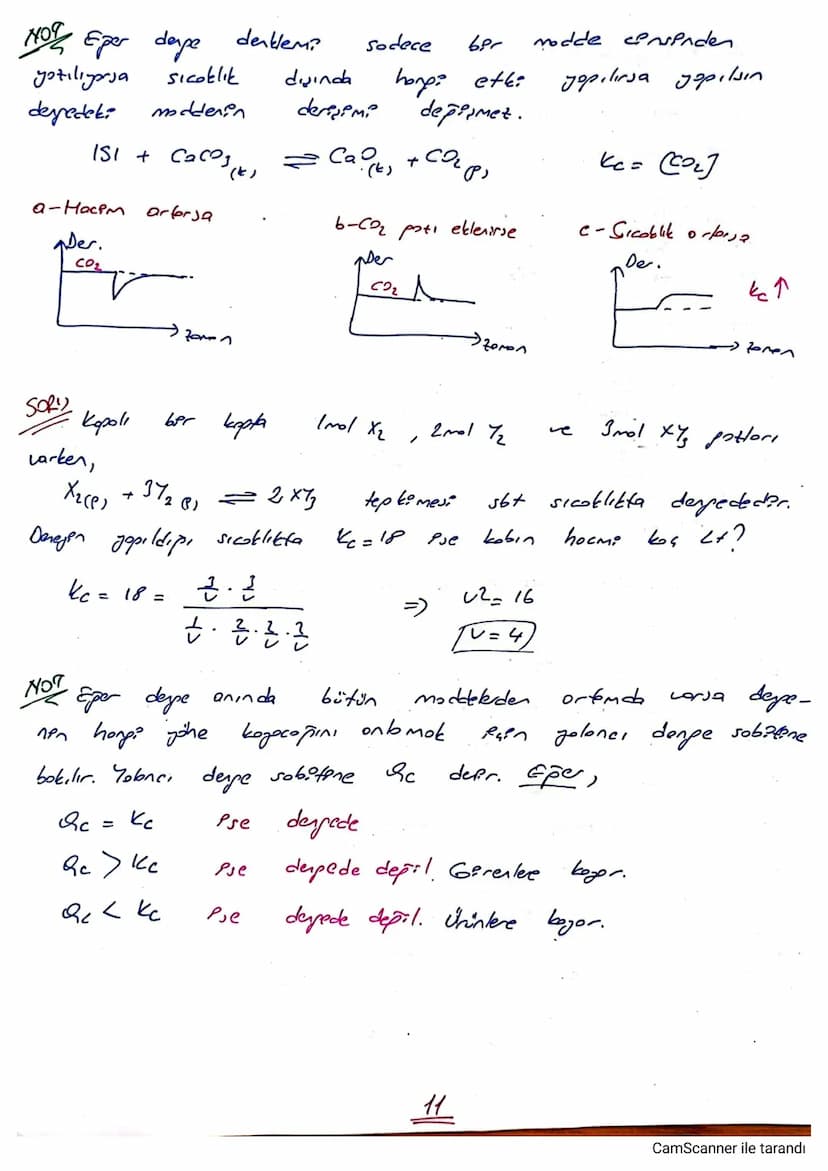 NOT Eğer denge denklemi sadece bir madde cinsinden
yazılıyorsa sıcaklık dışında hangi etki yapılırsa yapılsın
dengedeki maddenin derişimi değişmez.
ISI + CaCO3(k) ⇌ CaO(k) + CO2(g) Kc = [CO2]
a-Hacim artarsa
b-CO2 gazı eklenirse
c-Sıcaklık artarsa
Der.
CO2
zaman
Der
CO2
zaman
Der.
Kc↑
zaman
SORU Kapalı bir kapta 1mol X2, 2mol Y2 ve 3mol XY3 gazları
varken,
X2(g) + 3Y2(g) ⇌ 2XY3 tepkimesi sbt sıcaklıkta dengededir.
Deneyin yapıldığı sıcaklıkta Kc=18 ise kabın hacmi kaç Lt?
Kc = 18 = 3/V · 3/V
1/V · 2/V · 2/V · 2/V
⇒ V² = 16
V = 4
NOT Eğer denge anında bütün maddelerden ortamda varsa denge-
nin hangi yöne kayacağını anlamak için yalancı denge sabitine
bakılır. Yalancı denge sabitine Qc denir. Eğer,
Qc = Kc ise dengede
Qc > Kc ise dengede değil. Girenlere kayar.
Qc < Kc ise dengede değil. Ürünlere kayar.
11
CamScanner ile tarandı